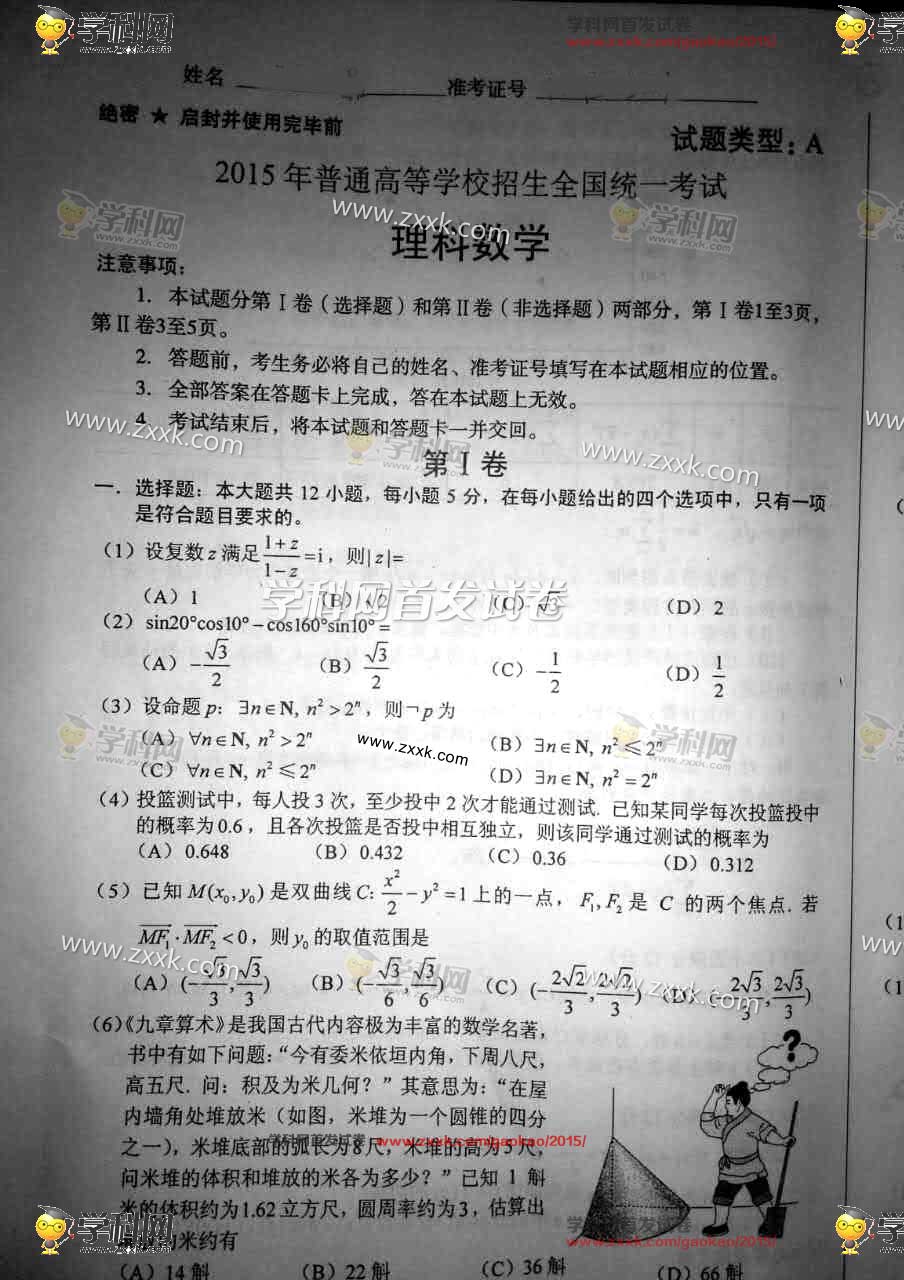 学科网
www.zxxk.com
学科网首发试卷
www.zxxk.com/gaokao/2015/
学科网
www.zxxk.com
姓名 准考证号
绝密 ★ 启封并使用完毕前
试题类型：A
2015 年普通高等学校招生全国统一考试
学科网
www.zxxk.com
www.zxxk.com
学科网
www.zxxk.com
理科数学
注意事项：
1． 本试题分第 I 卷（选择题）和第 II 卷（非选择题）两部分，第 I 卷1至3页，
第 II 卷3至5页。
2． 答题前，考生务必将自己的姓名、准考证号填写在本试题相应的位置。
3． 全部答案在答题卡上完成，答在本试题上无效。
4． 考试结束后，将本试题和答题卡一并交回。
www.zxxk.com
学科网
www.zxxk.com
www.zxxk.com
第 I 卷
一．选择题：本大题共 12 小题，每小题 5 分，在每小题给出的四个选项中，只有一项
是符合题目要求的。
（1）设复数 z 满足 (1+z)/(1−z) =i，则|z|=
学科网首发试卷
（A）1 （B）√2 （C）√3 （D）2
（2）sin20°cos10°−cos160°sin10°=
（A）−√3/2 （B）√3/2 （C）−1/2 （D）1/2
（3）设命题 p：∃n∈N, n²>2ⁿ，则¬p为
（A）∀n∈N, n²>2ⁿ （B）∃n∈N, n²≤2ⁿ
学科网
www.zxxk.com
www.zxxk.com
学科网
www.zxxk.com
（C）∀n∈N, n²≤2ⁿ （D）∃n∈N, n²=2ⁿ
（4）投篮测试中，每人投 3 次，至少投中 2 次才能通过测试. 已知某同学每次投篮投中
的概率为0.6，且各次投篮是否投中相互独立，则该同学通过测试的概率为
（A）0.648 （B）0.432 （C）0.36 （D）0.312
（5）已知 M(x₀,y₀) 是双曲线 C: x²/2 − y²=1 上的一点，F₁,F₂ 是 C 的两个焦点. 若
MF₁·MF₂<0，则 y₀ 的取值范围是
www.zxxk.com
学科网
www.zxxk.com
www.zxxk.com
（A）(−√3/3, √3/3) （B）(−√3/6, √3/6) （C）(−2√2/3, 2√2/3) （D）(−2√3/3, 2√3/3)
（6）《九章算术》是我国古代内容极为丰富的数学名著，
书中有如下问题：“今有委米依垣内角，下周八尺，
高五尺. 问：积及为米几何？”其意思为：“在屋
内墙角处堆放米（如图，米堆为一个圆锥的四分
之一），米堆底部的弧长为8尺，米堆的高为5尺，
学科网首发试卷 www.zxxk.com/gaokao/2015/
问米堆的体积和堆放的米各为多少？”已知 1 斛
米的体积约为1.62立方尺，圆周率约为3，估算出
的米约有
?
（A）14斛 （B）22斛 （C）36斛 （D）66斛
学科网
www.zxxk.com
学科网首发试卷
www.zxxk.com/gaokao/2015/
学科网
www.zxxk.com
（1
（1